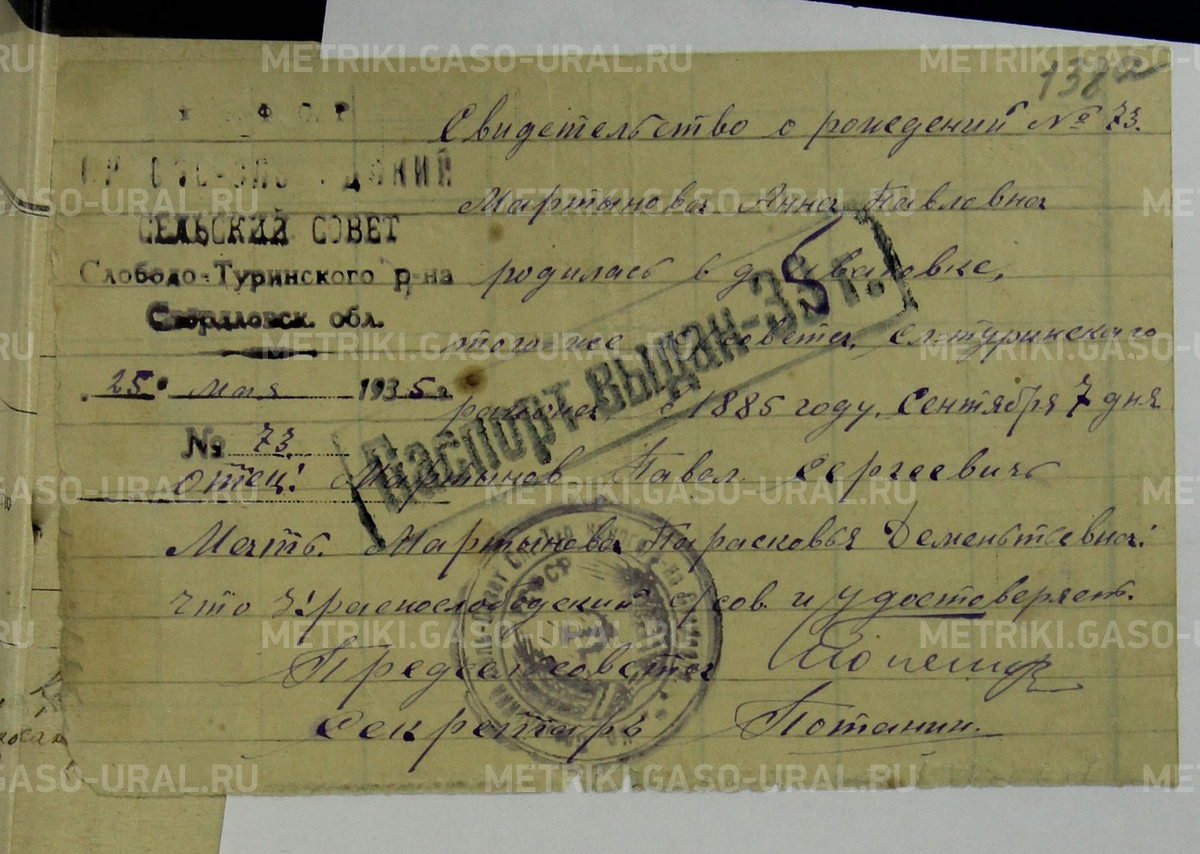 138а
Р.С.Ф.С.Р
КРАСНОСЛОБОДСКИЙ
СЕЛЬСКИЙ СОВЕТ
Слободо-Туринского р-на
Свердловск. обл.
25 мая 1935 г.
№ 73.
Свидетельство о рождений № 73.
Мартынова Анна Павловна
родилась в д. Ивановке,
того-же с/совета, Сл-туринскаго
района с 1885 году. Сентября 7 дня
отец: Мартынов Павел Сергеевичь
Мать. Мартынова Парасковья Дементьевна:
что Краснослободский с/сов. и удостоверяет.
Предсельсовета
Секретарь Потанин.
Паспорт выдан-35 г.
РСФСР
METRIKI.GASO-URAL.RU